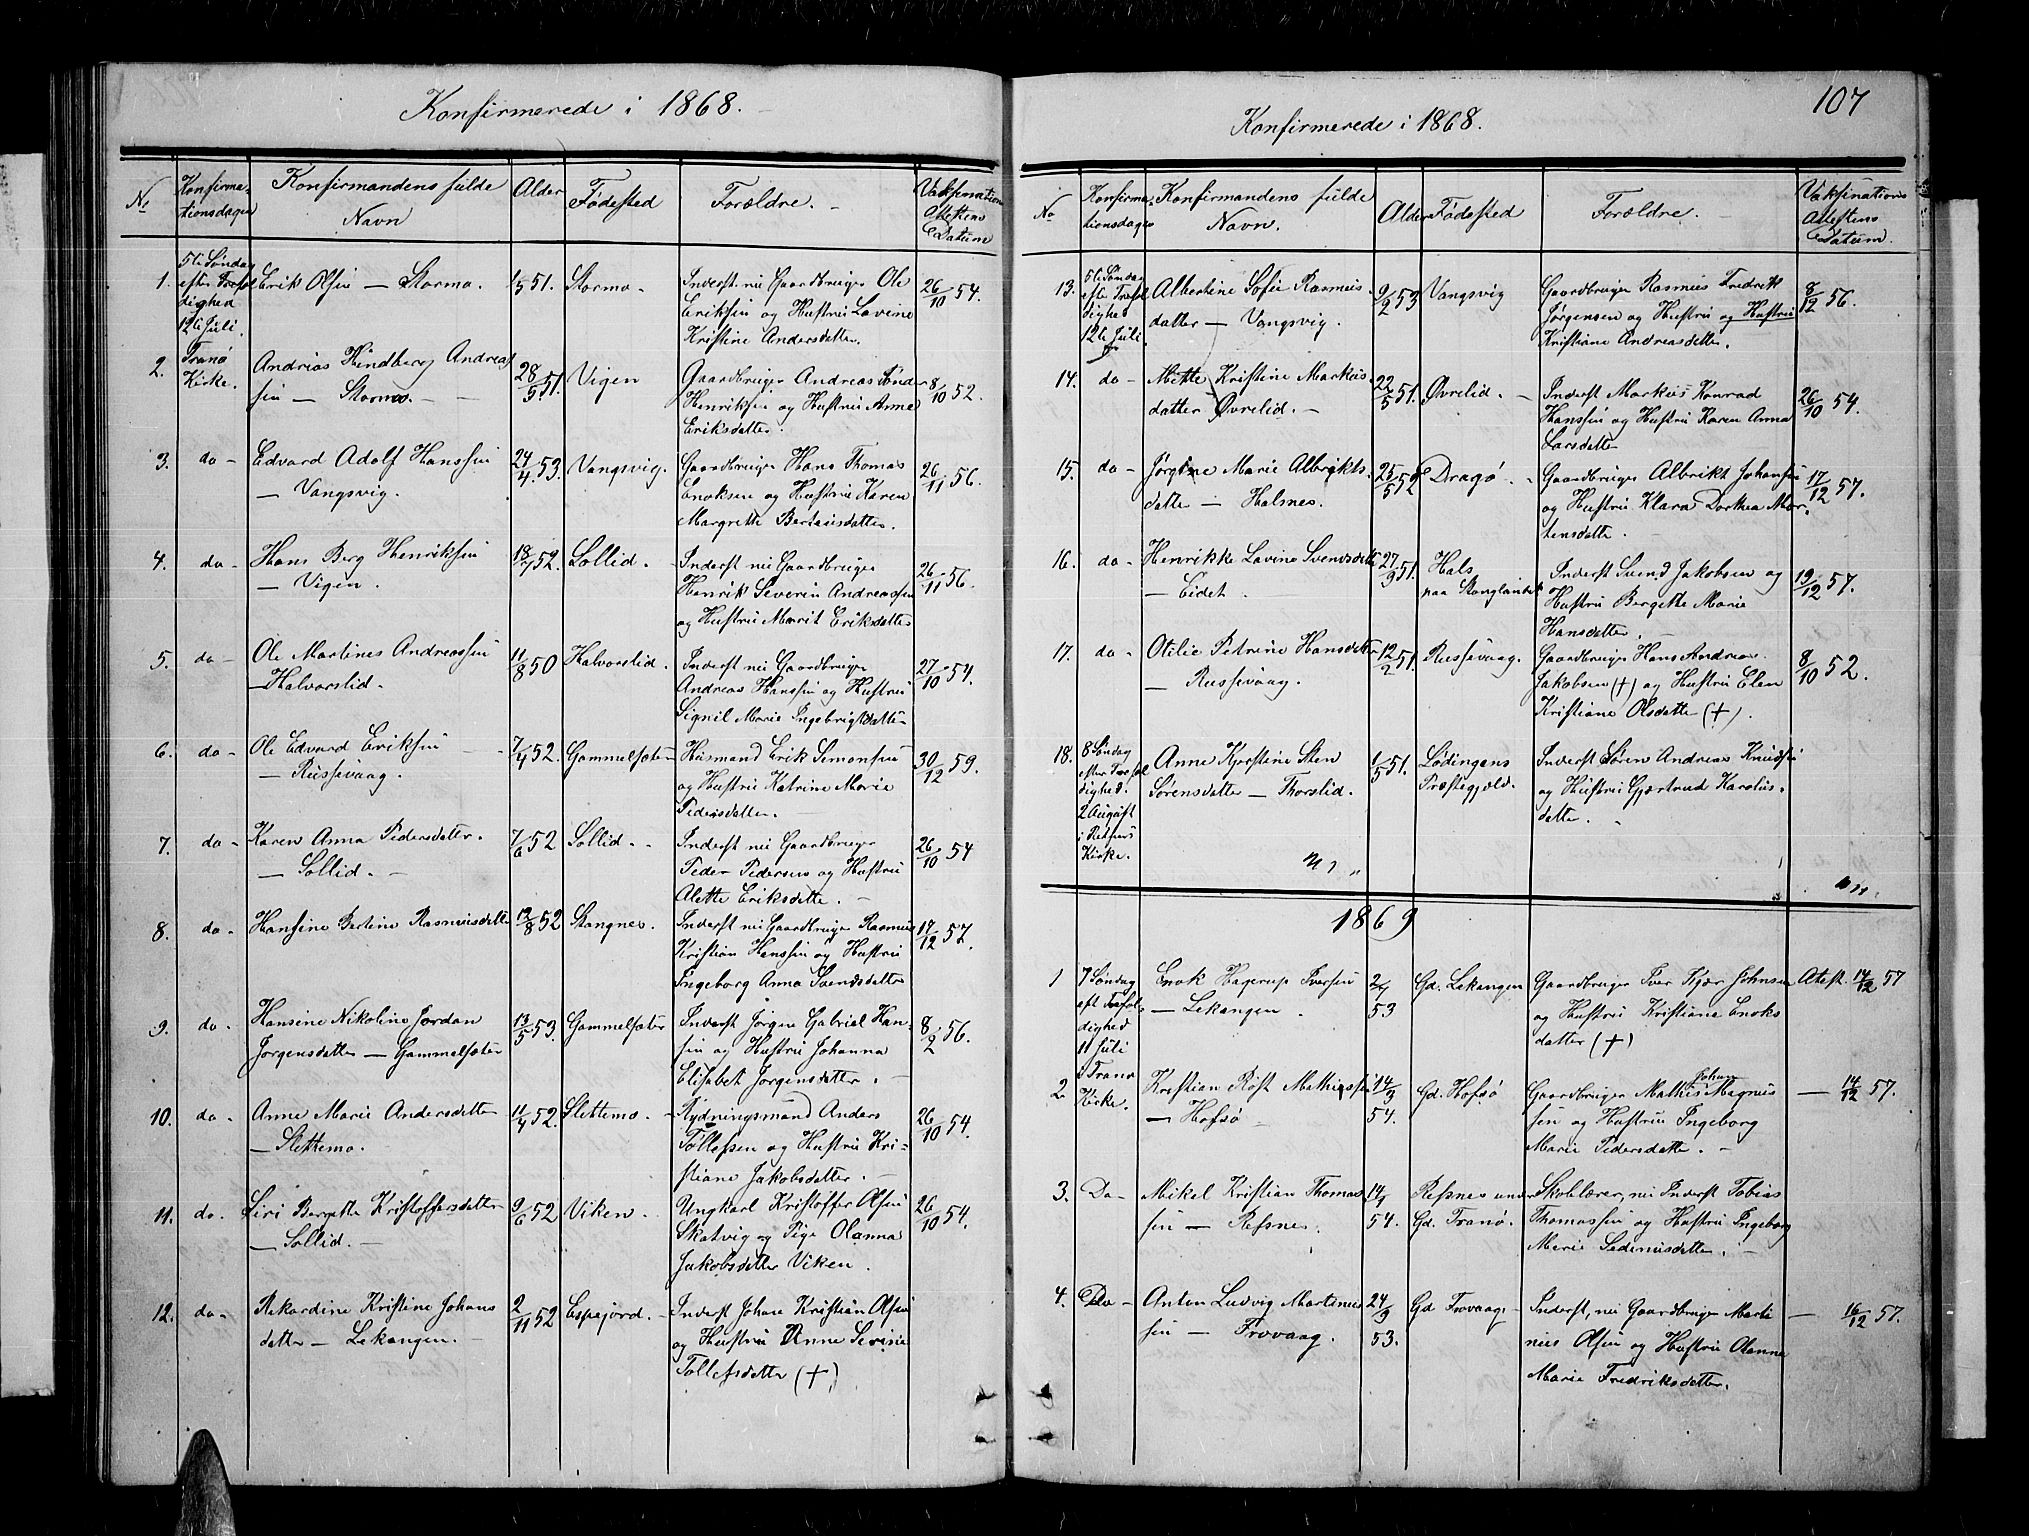 Konfirmerede i 1868.
No
Konfirma-
tionsdagen
Konfirmandens fulde
Navn
Alder
Fødested
Forældre.
Vaksinations
Attestens
Datum
1. 5te Søndag Erik Olsen — Stormo. 1/5 51. Stormo. Inderst nu Gaardbruger Ole 26/10 54.
efter Trefol
dighed Eriksen og Hustru Lavine
12te Juli. Kristine Andersdatter.
2. Tranø Andrias Hundberg Andreas 28/5 51. Vigen Gaardbruger Andreas 8/10 52.
Kirke. sen — Stormo. Henriksen og Hustru Anne
Eriksdatter.
3. do Edvard Adolf Hanssen 24/4 53. Vangsvig. Gaardbruger Hans Thomas 26/11 56.
— Vangsvig. Enoksen og Hustru Karen
Margrethe Bertæusdatter.
4. do Hans Berg Henriksen 18/7 52. Sollid. Inderst nu Gaardbruger 26/11 56.
— Vigen. Henrik Severin Andreassen
og Hustru Marit Eriksdatter
5. do Ole Martines Andreassen 11/8 50 Halvorslid. Inderst nu Gaardbruger 27/10 54.
— Halvorslid. Andreas Hanssen og Hustru
Signil Marie Ingebrigtsdatter
6. do Ole Edvard Eriksen 7/4 52. Gammelsæter Husmand Erik Simonsen 30/12 59.
— Russevaag. og Hustru Katrine Marie
Pedersdatter.
7. do Karen Anna Pedersdatter. 7/6 52 Sollid. Inderst nu Gaardbruger 26/10 54
— Sollid. Peder Pedersen og Hustru
Alette Eriksdatter.
8. do Hansine Bertine Rasmusdatter 12/8 52 Stangnes. Inderst nu Gaardbruger Rasmus 17/12 57.
Kristian Hanssen og Hustru
Ingeborg Anna Svendsdatter
9. do Hansine Nikoline Jordan 13/5 53. Gammelsæter Inderst Jørgen Gabriel Han- 8/2 56.
Jørgensdatter — Gammelsæter sen og Hustru Johanna
Elisabet Jørgensdatter.
10. do Anne Marie Andersdatter 11/4 52. Slettemo. Rydningsmand Anders 26/10 54.
— Slettemo. Tollefsen og Hustru Kri-
stiane Jakobsdatter.
11. do Siri Bergitte Kristoffersdatter 9/6 52 Viken. Ungkarl Kristoffer Olsen 26/10 54.
— Sollid. Skatvig og Pige Olanna
Jakobsdatter Viken.
12. do Rikardine Kristine Johans 2/11 52 Espejord. Inderst Johan Kristian Olsen
datter — Lekangen. og Hustru Anne Sevine
Tollefsdatter (+)
107
Konfirmerede i 1868.
No
Konfirma-
tionsdagen
Konfirmandens fulde
Navn.
Alder
Fødested
Forældre.
Vaksinations
Attestens
Datum.
13. 5te Søndag Albertine Sofie Rasmus 9/2 53 Vangsvig Gaardbruger Rasmus Fredrik 8/12 56.
efter Trefol
dighed datter — Vangsvig. Jørgensen og Hustru og Hustru
12te Juli. Kristiane Andreasdatter.
14. do Mette Kristine Markus 22/5 51. Øvrelid. Inderst Markus Konrad 26/10 54.
datter Øvrelid. Hanssen og Hustru Karen Anna
Larsdatter
15. do Jørgine Marie Albrikts 25/5 52 Dragø. Gaardbruger Albrikt Johansen 17/12 57.
datter — Halmes. og Hustru Klara Dorthea Mor-
tensdatter.
16. do Henrikke Lavine Svendsdatter 27/9 51. Hals Inderst Svend Jakobsen og 19/12 57.
— Eidet. paa Stonglandet Hustru Bergitte Marie
Hansdatter.
17. do Otilie Petrine Hansdatter 12/2 51. Russevaag. Gaardbruger Hans Andreas 8/10 52.
— Russevaag. Jakobsen (+) og Hustru Elen
Kristiane Olsdatter (+).
18. 8 Søndag Anne Kjerstine Sten 1/5 51. Lødingens Inderst Søren Andreas Knudsen
efter Trefol
dighed. Sørensdatter — Thorslid. Præstegjæld. og Hustru Gjertrud Karolus-
2 August datter.
i
Kirke.
1869
1 7 Søndag Enok Hagerup Iversen 2/4 Gd. Lekangen Gaardbruger Iver Kjær Johnsen Atest. 14/12 57
eft Trefol-
dighed — Lekangen. 53 og Hustru Kristiane Enoks
11 Juli datter (+)
i Tranø
2 Kirke. Kristian Røst Mathisssen 14/3 Gd. Hofsø Gaardbruger Mathis Johan Magnus — 14/12 57.
— Hofsø 54. sen og Hustru Ingeborg
Marie Pedersdatter.
3. Do Mikel Kristian Thomas 14/1 Refsnes under Skolelærer, nu Inderst Tobias
sen — Refsnes. 54. Gd. Tranø. Thomassen og Hustru Ingeborg
Marie Sedeniusdatter.
4. Do Anton Ludvig Martinus 24/9 Gd Frovaag Inderst, nu Gaardbruger Marti — 16/12 57.
sen — Frovaag. 53. nus Olsen og Hustru Olanna
Marie Fredriksdatter.